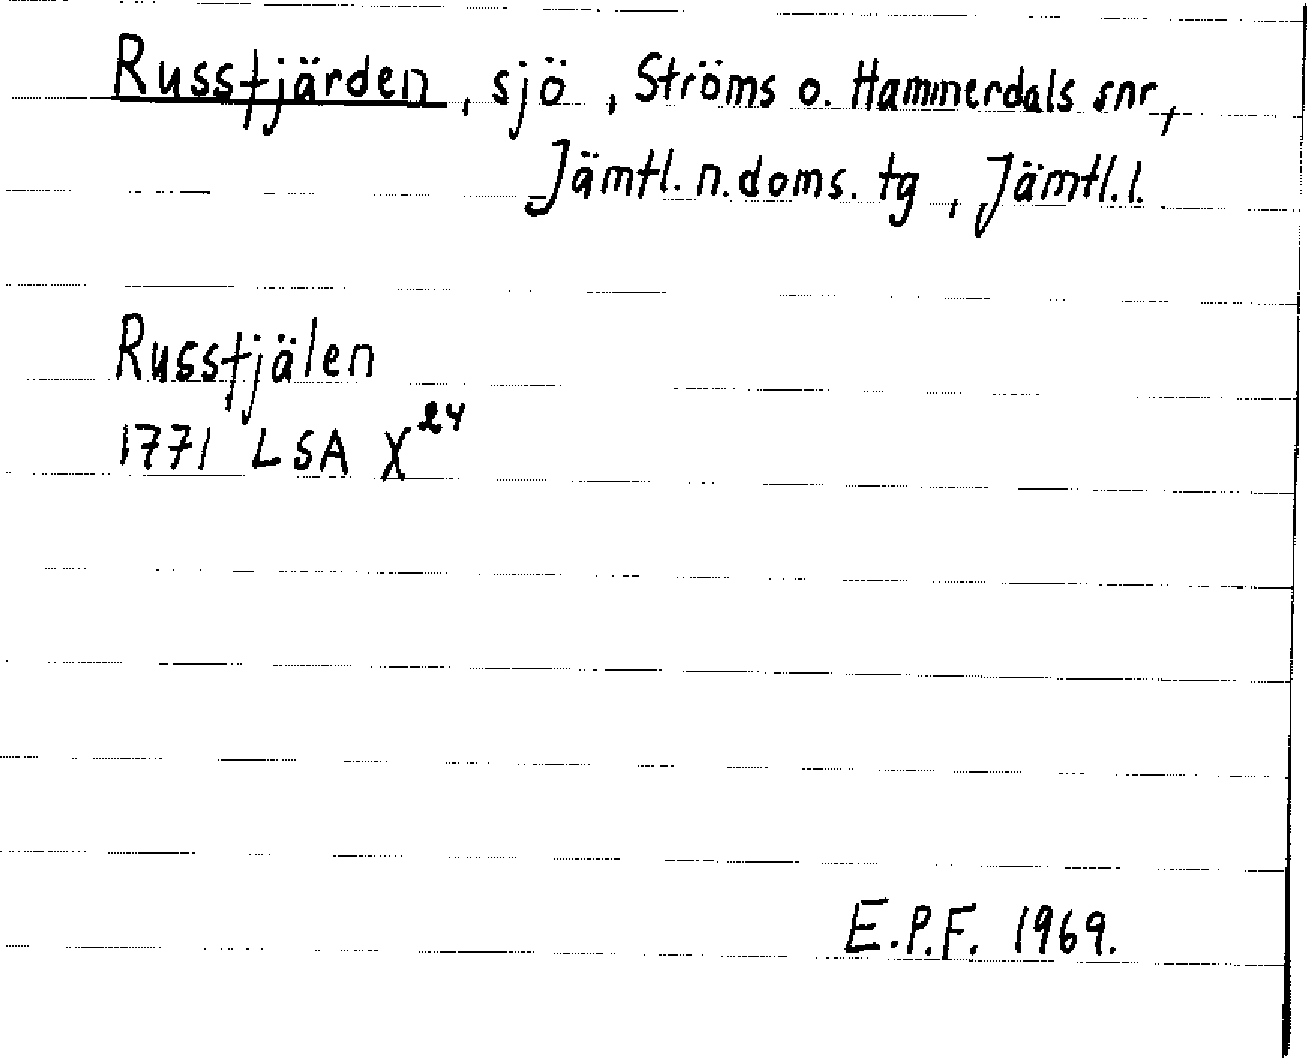 Russfjärden, sjö, Ströms o. Hammerdals snr,
Jämtl. n. doms. tg, Jämtl. l.
Russfjälen
1771 LSA X²⁴
E.P.F. 1969.